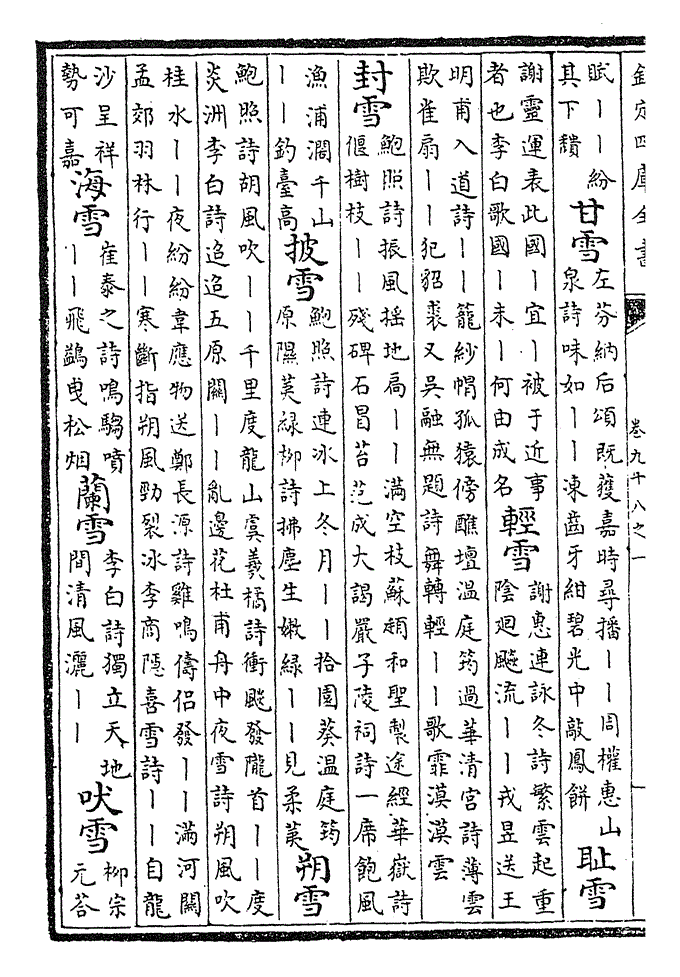 欽定四庫全書 卷九十八之一
賦丨丨紛
其下穨
甘雪
左芬納后頌既蒦嘉時尋播丨丨周權惠山
泉詩味如丨丨凍齒牙紺碧光中敲鳳餅
耻雪
謝靈運表此國丨宜丨被于近事
者也李白歌國丨未丨何由成名
輕雪
謝惠連詠冬詩繁雲起重
陰迴飈流丨丨戎昱送王
明甫入道詩丨丨籠紗帽孤猿傍醮壇温庭筠過華清宫詩薄雲
欺雀扇丨丨犯貂裘又吳融無題詩舞轉輕丨丨歌霏漠漠雲
封雪
鮑照詩振風揺地局丨丨滿空枝蘇頲和聖製途經華嶽詩
偃樹枝丨丨殘碑石冒苔范成大謁嚴子陵祠詩一席飽風
漁浦濶千山
丨丨釣臺高
披雪
鮑照詩連冰上冬月丨丨拾園葵温庭筠
原隰荑緑柳詩拂塵生嫩緑丨丨見柔荑
朔雪
鮑照詩胡風吹丨丨千里度龍山虞羲橘詩衝飈發隴首丨丨度
炎洲李白詩迢迢五原關丨丨亂邊花杜甫舟中夜雪詩朔風吹
桂水丨丨夜紛紛韋應物送鄭長源詩雞鳴儔侣發丨丨滿河關
孟郊羽林行丨丨寒斷指朔風勁裂冰李商隱喜雪詩丨丨自龍
沙呈祥
勢可嘉
海雪
崔泰之詩鳴騶噴
丨丨飛鷁曳松烟
蘭雪
李白詩獨立天地
間清風灑丨丨
吠雪
柳宗
元荅